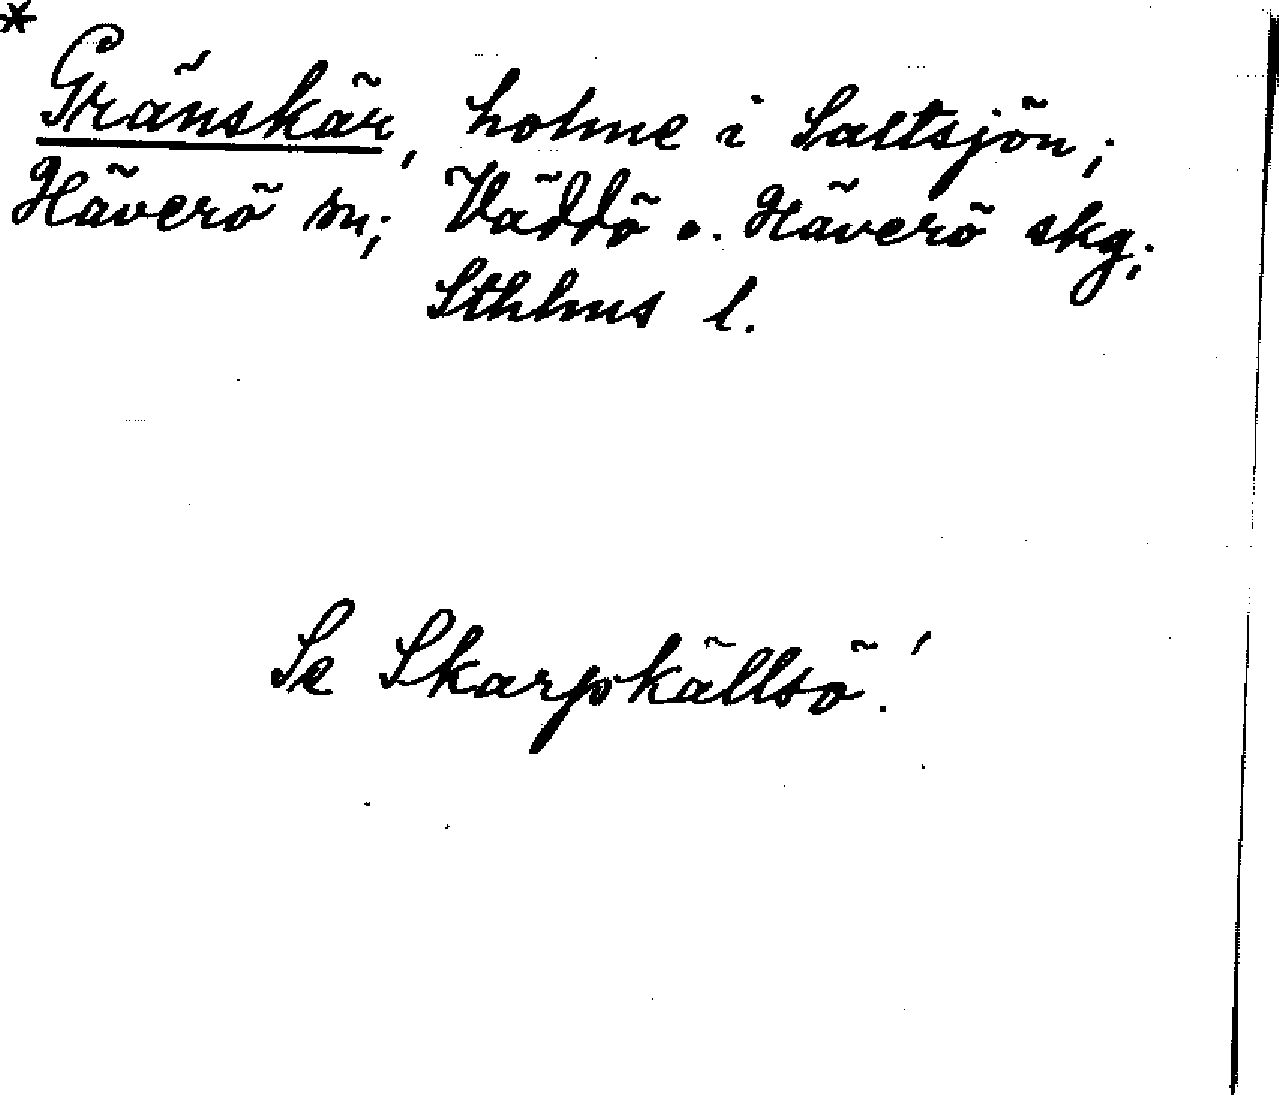 *
Gränskär, holme i Saltsjön;
Häverö sn; Väddö o. Häverö skg;
Sthlms l.
Se Skarpkällsö!